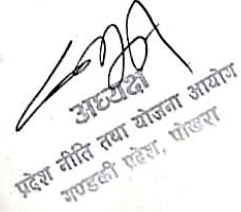 अध्यक्ष
प्रदेश नीति तथा योजना आयोग
गण्डकी प्रदेश, पोखरा